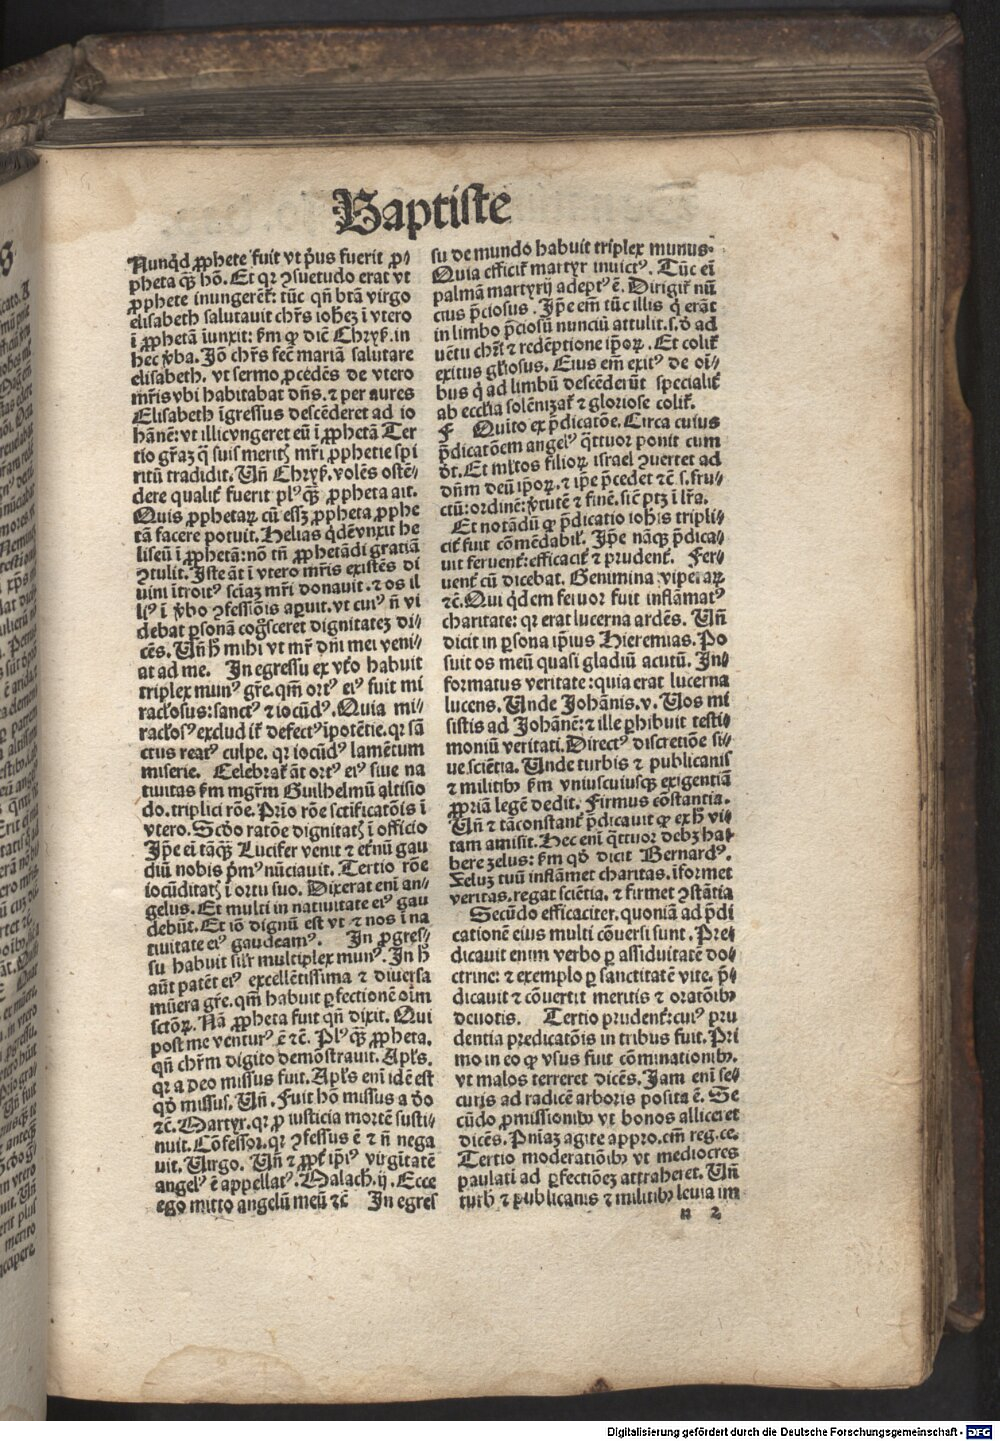 Baptiste
Nunq̄d ꝓphete fuit vt pͥus fuerit ꝓ⸗
pheta qȝ hō. Et qꝛ ꝯsuetudo erat vt
ꝓphete inungerēt: tūc qn̄ btā virgo
elisabeth salutauit chr̄s iohēȝ ī vtero
ī ꝓphetā iunxit: ẜm ꝙ dic̄ Chryẜ. in
hec v̄ba. Iō chr̄s fec̄ mariā salutare
elisabeth. vt sermo ꝓcedēs de vtero
mr̄is vbi habitabat dn̄s. ⁊ per aures
Elisabeth īgressus descēderet ad io
hānē: vt illic vngeret eū ī ꝓphetā Ter
tio gr̄aȝ q̄ suis merit̄ mr̄i ꝓphetie spi
ritū tradidit. Vn̄ Chryẜ. volēs ostē⸗
dere qualit̄ fuerit plꝰ qȝ ꝓpheta ait.
Quis ꝓphetaꝝ cū esseȝ ꝓpheta ꝓphe
tā facere potuit. Helias q̇dē vnxit he
liseū ī ꝓphetā: nō tn̄ ꝓphetādi gratiā
ꝯtulit. Iste āt ī vtero mr̄is existēs di
uini ītroitꝰ sciāȝ mr̄i donauit. ⁊ os il
liꝰ ī v̄bo ꝯfessiōis aꝑuit. vt cuiꝰ n̄ vi
debat ꝑsonā coḡsceret dignitateȝ di⸗
cēs. Vn̄ h̄ mihi vt mr̄ dn̄i mei veni⸗
at ad me. In egressu ex vt̄o habuit
triplex munꝰ gr̄e. qm̄ ortꝰ eiꝰ fuit mi
racl̄osus: sanctꝰ ⁊ iocūdꝰ. Quia mi⸗
racl̄osꝰ excludit̄ defectꝰ īpotētie. qꝛ sā
ctus reatꝰ culpe. qꝛ iocūdꝰ lamētum
miserie. Celebrat̄ āt ortꝰ eiꝰ siue na
tiuitas ẜm mgr̄m Guilhelmū altisio
do. triplici rōe. Prīo rōe sctīficatōis ī
vtero. Scd̄o ratōe dignitat̄ ī officio
Ip̄e eī tāqȝ Lucifer venit ⁊ et̄nū gau
diū nobis pͥmꝰ nūciauit. Tertio rōe
iocūditat̄ ī ortu suo. Dixerat enī an⸗
gelus. Et multi in natiuitate eiꝰ gau
debūt. Et iō dignū est vt ⁊ nos ī na
tiuitate eiꝰ gaudeamꝰ. In ꝓgres⸗
su habuit sil̄r multiplex munꝰ. In h̄
aūt patēt eiꝰ excellētissima ⁊ diuersa
mūera gr̄e. qm̄ habuit ꝑfectionē oīm
sctōꝝ. Nā ꝓpheta fuit qn̄ dixit. Qui
post me venturꝰ ē ⁊c̄. Plꝰ qȝ ꝓpheta.
qn̄ chr̄m digito demōstrauit. Apl̄s.
qꝛ a deo missus fuit. Apl̄s enī idē est
qd̄ missus. Vn̄. Fuit hō missus a d̄o
⁊c̄. Martyr. qꝛ ꝓ iusticia mortē susti⸗
nuit. Cōfessor. qꝛ ꝯfessus ē ⁊ n̄ nega
uit. Virgo. Vn̄ ⁊ ꝓpt̄ ip̄iꝰ virgītatē
angelꝰ ē appellatꝰ. Malach. ij. Ecce
ego mitto angelū meū ⁊c̄ In egres
su de mundo habuit triplex munus.
Quia efficit̄ martyr inuictꝰ. Tūc eī
palmā martyrij adeptꝰ ē. Dirigit̄ nū
cius p̄ciosus. Ip̄e em̄ tūc illis q̇ erāt
in limbo p̄ciosū nunciū attulit. s. d̄ ad
uētu chr̄i ⁊ redēptione ip̄oꝝ. Et colit̄
exitus gl̄iosus. Eius em̄ exitꝰ de oī⸗
bus q̇ ad limbū descēderūt specialit̄
ab ecclīa solēnizat̄ ⁊ gloriose colit̄.
F Quīto ex p̄dicatōe. Circa cuius
p̄dicatōem angelꝰ q̄ttuor ponit cum
d̄t. Et ml̄tos filioꝝ israel ꝯuertet ad
dn̄m deū ip̄oꝝ. ⁊ ip̄e p̄cedet ⁊c̄. s. fru⸗
ctū: ordinē: v̄tutē ⁊ finē. sic̄ ptȝ ī lr̄a.
Et notādū ꝙ p̄dicatio ioh̄is tripli⸗
cit̄ fuit cōmēdabil̄. Ip̄e nāqȝ p̄dica⸗
uit feruent̄: efficacit̄ ⁊ prudent̄. Fer⸗
uent̄ cū dicebat. Genimina viperaꝝ
⁊c̄. Qui q̇dem feruor fuit inflāmatꝰ
charitate: qꝛ erat lucerna ardēs. Vn̄
dicit in ꝑsona ip̄ius Hieremias. Po
suit os meū quasi gladiū acutū. In⸗
formatus veritate: quia erat lucerna
lucens. Unde Johānis. v. Uos mi
sistis ad Johānē: ⁊ ille ꝑhibuit testi⸗
moniū veritati. Directꝰ discretiōe si⸗
ue sciētia. Unde turbis ⁊ publicanis
⁊ militibꝰ ẜm vniuscuiusqȝ exigentiā
ꝓpriā legē dedit. Firmus cōstantia.
Vn̄ ⁊ tā constant̄ p̄dicauit ꝙ ex h̄ vi⸗
tam amisit. Hec enī q̄ttuor debȝ ha⸗
bere zelus: ẜm qd̄ dicit Bernardꝰ.
Zelum tuū inflāmet charitas. īformet
veritas. regat sciētia. ⁊ firmet ꝯstātia
Secūdo efficaciter. quoniā ad p̄di
cationē eius multi cōuersi sunt. Pre⸗
dicauit enim verbo ꝑ assiduitatē do⸗
ctrine: ⁊ exemplo ꝑ sanctitatē vite. p̄⸗
dicauit ⁊ cōuertit meritis ⁊ oratōibꝰ
deuotis. Tertio prudent̄: cuiꝰ pru
dentia predicatōis in tribus fuit. Pri
mo in eo ꝙ vsus fuit cōminationibꝰ.
vt malos terreret dicēs. Jam enī se⸗
curis ad radicē arboris posita ē. Se
cūdo ꝓmissionibꝰ vt bonos alliceret
dicēs. Pn̄iaȝ agite appro. em̄ reg. ce.
Tertio moderatiōibꝰ vt mediocres
paulati ad ꝑfectiōeȝ attraheret. Vn̄
turb̄ ⁊ publicanis ⁊ militibꝰ leuia im
n 2
Digitalisierung gefördert durch die Deutsche Forschungsgemeinschaft - DFG